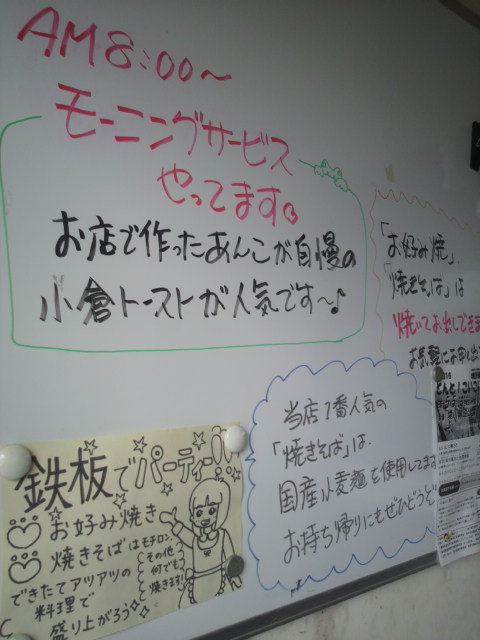 AM8:00〜
モーニングサービス
やってます。
お店で作ったあんこが自慢の
小倉トーストが人気です〜♪
「お好み焼」
「焼きそば」は
焼いてお出しできま
お気軽にお申し出
当店1番人気の
「焼きそば」は、
国産小麦麺を使用してます
お持ち帰りにもぜひどうぞ
鉄板でパーティー!!
お好み焼き
焼きそばはモチロン、
その他
何でも
焼きます!
できたてアツアツの
料理で
盛り上がろう